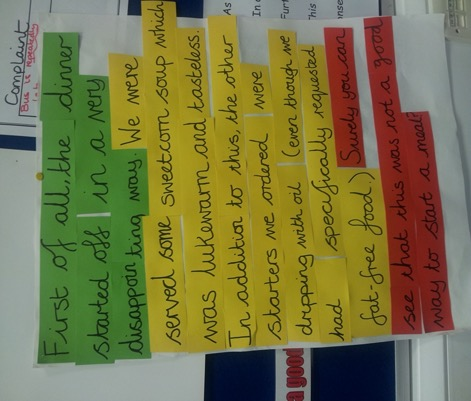 Complaint
Bus is repeatedly
late
First of all, the dinner
started off in a very
disappointing way. We were
served some sweetcorn soup which
was lukewarm and tasteless.
In addition to this, the other
starters we ordered were
dripping with oil (even though we
had specifically requested
fat-free food.) Surely you can
see that this was not a good
way to start a meal?
As
In
Furt
This
nse
a good